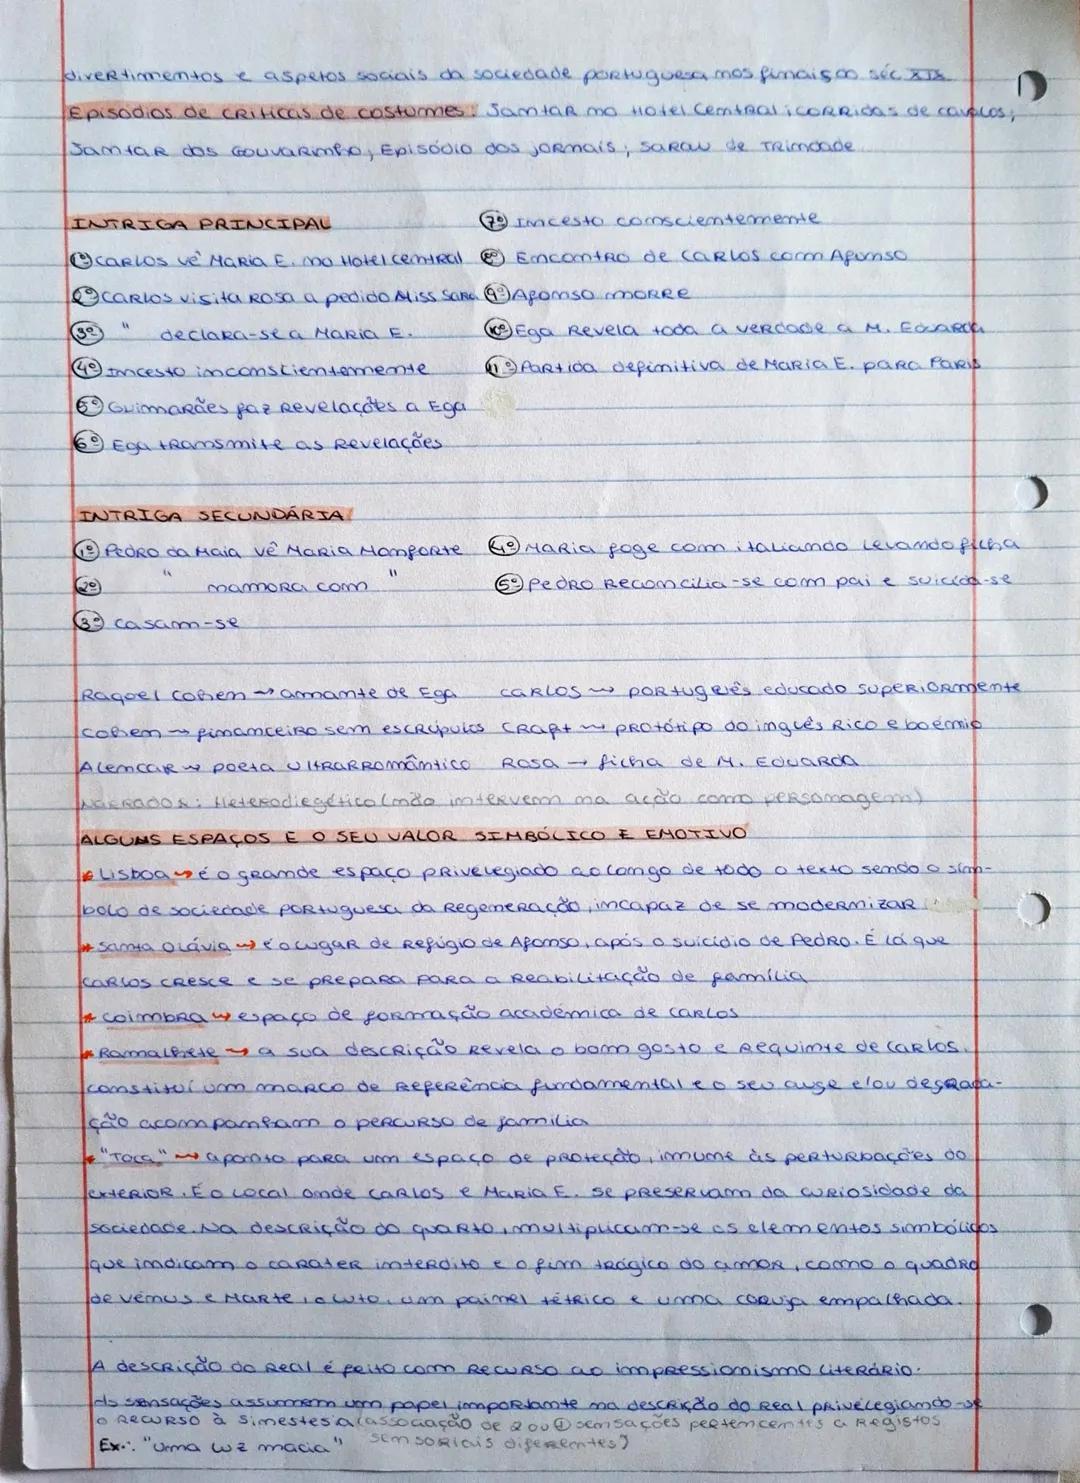 divertimentos e aspetos sociais da sociedade portuguesa nos finais do séc XIX
Episódios de criticas de costumes: Jantar no Hotel Central; corridas de cavalos;
Jantar dos Gouvarinho; Episódio dos jornais; sarau de Trindade
INTRIGA PRINCIPAL
1º Carlos vê Maria E. no Hotel Central
2º Carlos visita Rosa a pedido Miss Sara
3º " declara-se a Maria E.
4º Incesto inconscientemente
5º Guimarães faz revelações a Ega
6º Ega transmite as revelações
7º Incesto conscientemente
8º Encontro de Carlos com Afonso
9º Afonso morre
10º Ega revela toda a verdade a M. Eduarda
11º Partida definitiva de Maria E. para Paris
INTRIGA SECUNDÁRIA
1º Pedro da Maia vê Maria Monforte
2º " namora com "
3º casam-se
4º Maria foge com italiando levando filha
5º Pedro reconcilia-se com pai e suicida-se
Raquel Cohen → amante de Ega
Cohen → financeiro sem escrúpulos
Alencar → poeta ultrarromântico
Carlos → português educado superiormente
Craft → protótipo do inglês rico e boémio
Rosa → filha de M. Eduarda
NARRADOR: Heterodiegético (não intervem na ação como personagem)
ALGUNS ESPAÇOS E O SEU VALOR SIMBÓLICO E EMOTIVO
* Lisboa → é o grande espaço privelegiado ao longo de todo o texto sendo o sím-
bolo de sociedade portuguesa da Regeneração, incapaz de se modernizar
* Santa Olávia → é o lugar de refúgio de Afonso, após o suicídio de Pedro. É lá que
Carlos cresce e se prepara para a reabilitação de família
* Coimbra → espaço de formação académica de Carlos
* Ramalhete → a sua descrição revela o bom gosto e requinte de Carlos.
constitui um marco de referência fundamental e o seu auge e/ou degrada-
ção acompanham o percurso de família
* "Toca" → aponta para um espaço de proteção, imune às perturbações do
exterior. É o local onde Carlos e Maria E. se preservam da curiosidade da
sociedade. Na descrição do quarto, multiplicam-se os elementos simbólicos
que indicam o caráter interdito e o fim trágico do amor, como o quadro
de vénus e Marte, o luto, um painel tétrico e uma coruja empalhada.
A descrição do real é feito com recurso ao impressionismo literário.
As sensações assumem um papel importante na descrição do real privelegiando-se
o recurso à simestesia (associação de 2 ou + sensações pertencentes a registos
sensoriais diferentes)
Ex.: "uma luz macia"